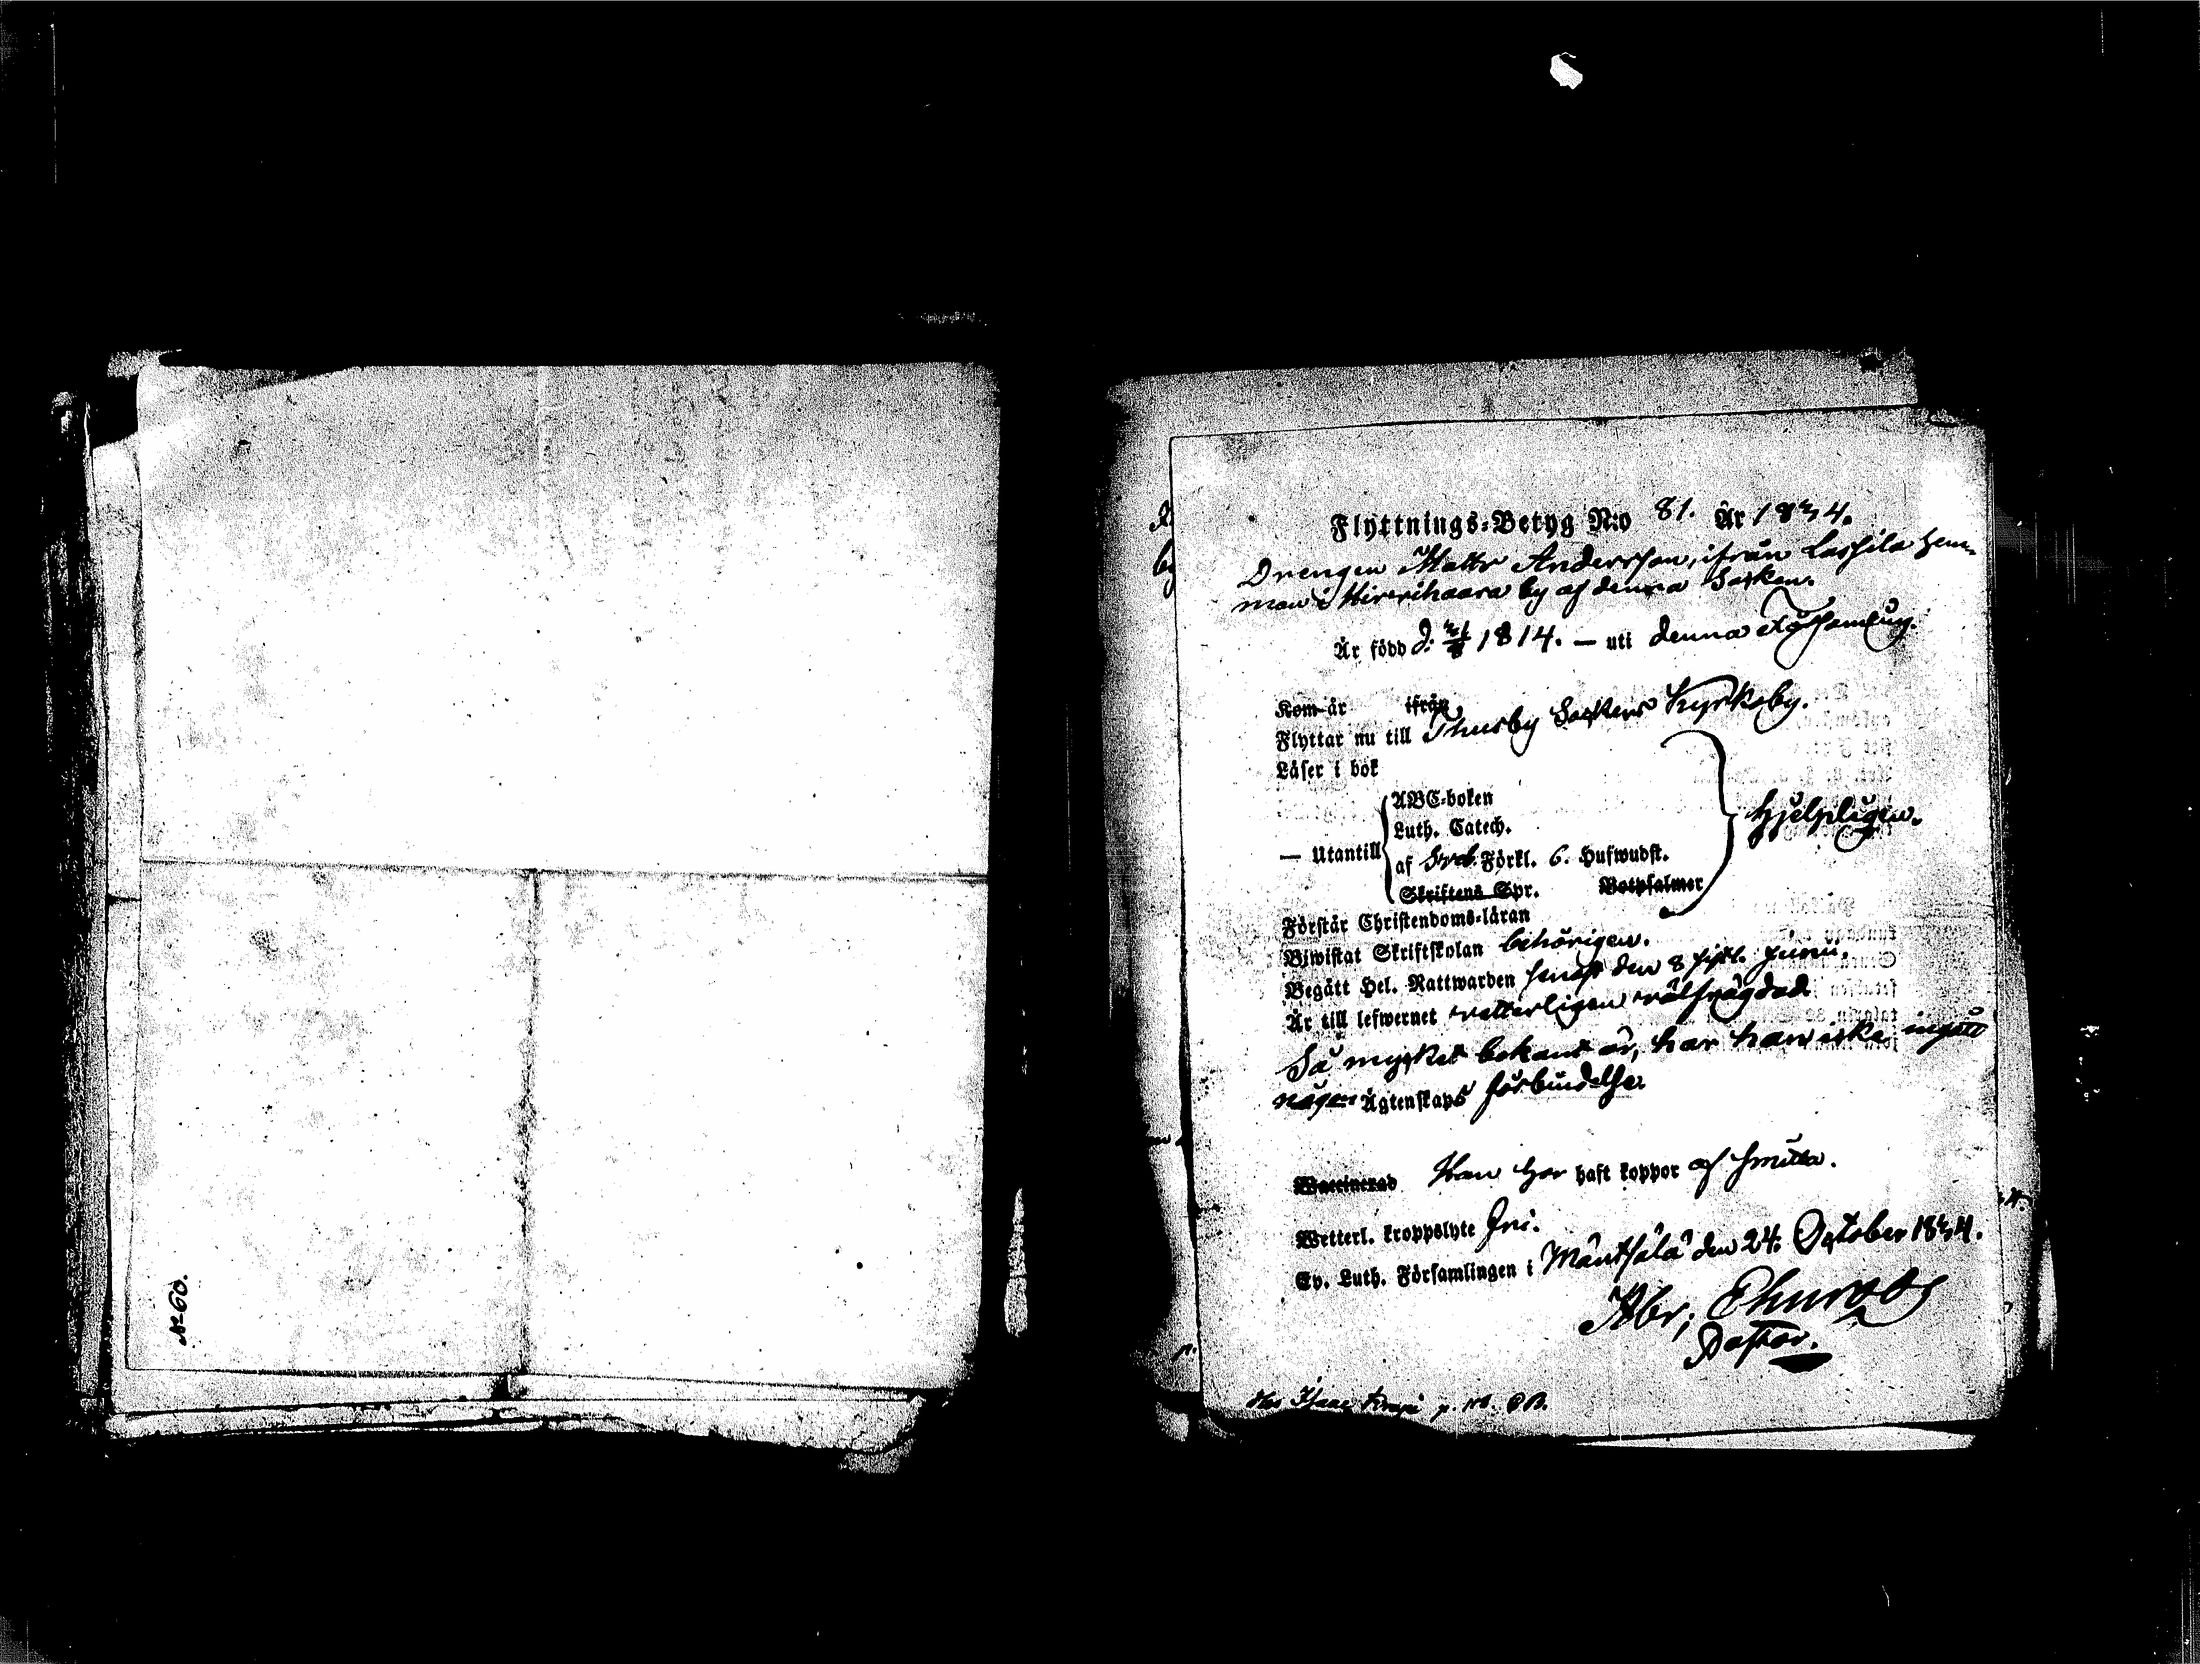 № 60.
Flyttnings-Betyg N:o 81. År 1834.
Drengen Matts Andersson, ifrån Lassila hem-
man i Hirvihaara by af denna Socken.
Är född d. 1814. — uti denna Församling.
Kom år ifrån
Flyttar nu till Thusby Sockens Kyrkoby.
Läser i bok
ABC-boken
Luth. Catech.
— Utantill
af Sveb. Förkl. 6. Hufwudst.
hjelpligen.
Skriftens Spr. Botpsalmer
Förstår Christendoms-läran
Biwistat Skriftskolan behörigen.
Begått Hel. Nattwarden senast den 8 sistl. Junii.
Är till lefwernet vetterligen välfrägdad.
Så mycket bekant är, har han icke ingått
någon Ägtenskaps förbindelse
Waccinerad Han har haft koppor af smitta.
Wetterl. kroppslyte fri.
Ev. Luth. Församlingen i Mäntsälä den 24. October 1834.
Abr;
Pastor.
Hos Isaac